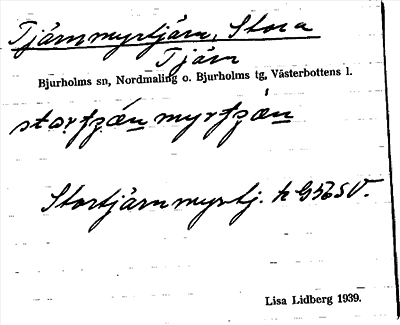 Tjärnmyrtjärn, Stora
Tjärn
Bjurholms sn, Nordmaling o. Bjurholms tg, Västerbottens l.
Stortjärnmyrtj. k G56SV.
Lisa Lidberg 1939.